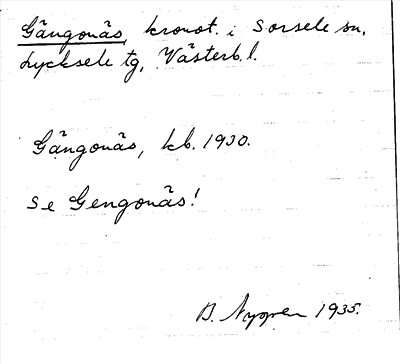 Gängonäs, kronot. i Sorsele sn,
Lycksele tg, Västerb. l.
Gängonäs, kb. 1930.
Se Gengonäs!
B. Nygren 1935.